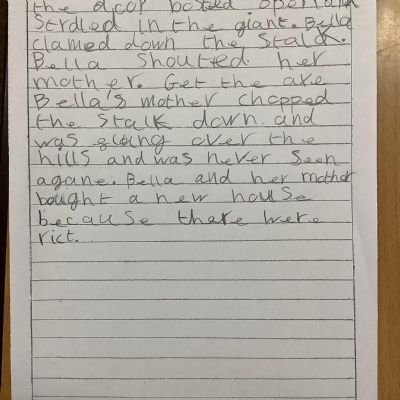 the door bosted open and
Strdled in the giant. Bella
clamed down the Stalk.
Bella Shouted her
mother. Get the axe
Bella's mother chopped
the Stalk down and
was going over the
hills and was never Seen
agane. Bella and her mother
bought a new house
because there were
rict.